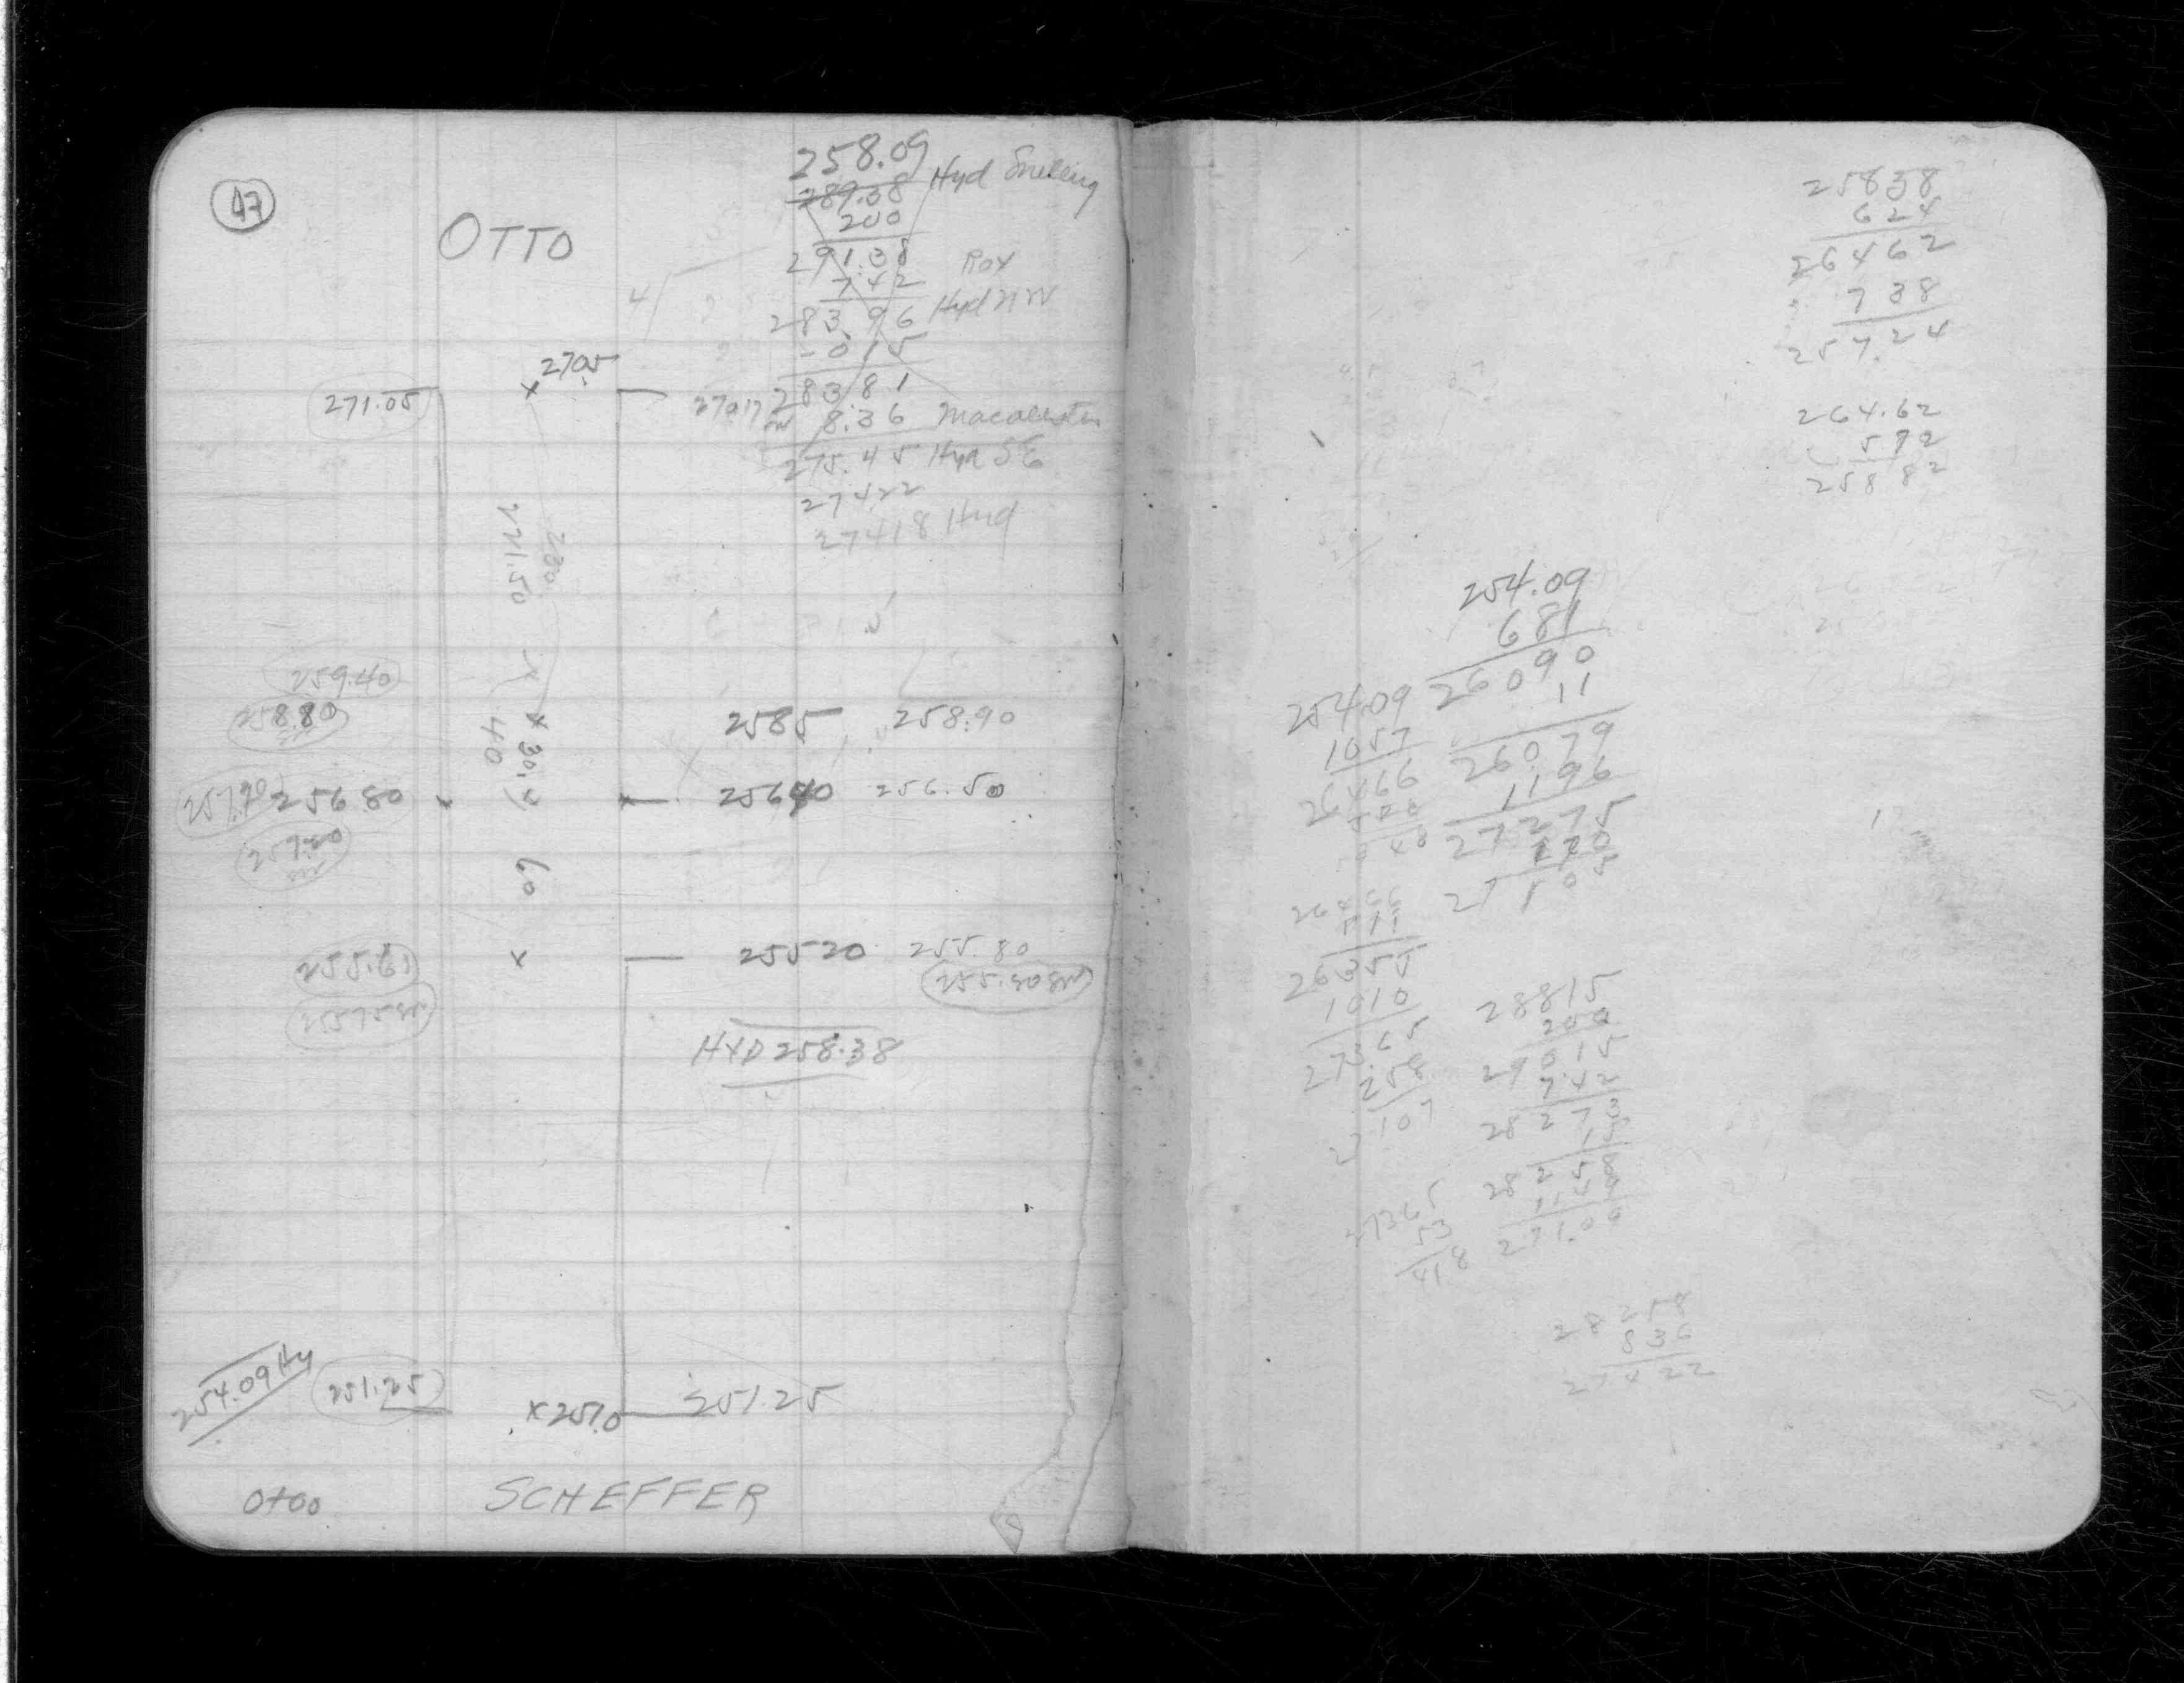 47
OTTO
258.09
289.38 Hyd Snelling
200
291.38
7 42 Roy
283 96 Hyd N W
- 0 15
283 81
8.36 Macalester
275.45 Hyd SE
27422
27418 Hyd
4
x 270.5
271.05
270.17
280
221.50
259.40
258.80
x 30.2
40
2585 258.90
257.70 256 80
25640 256.50
257.20
60
255.61 x 25520 255.80
255.80 SW
25575 SW
HYD 258.38
254.09 Hy
251.25
x 251.0 251.25
0+00 SCHEFFER
25838
624
26462
738
257.24
264.62
572
258 82
254.09
681
26090
11
26079
1196
27275
170
27105
254.09
1057
26466
48
26466
111
26355
1010
27365
258
27107
27365
53
418
28815
200
29015
7.42
28273
15
28258
1149
271.09
28258
836
27422